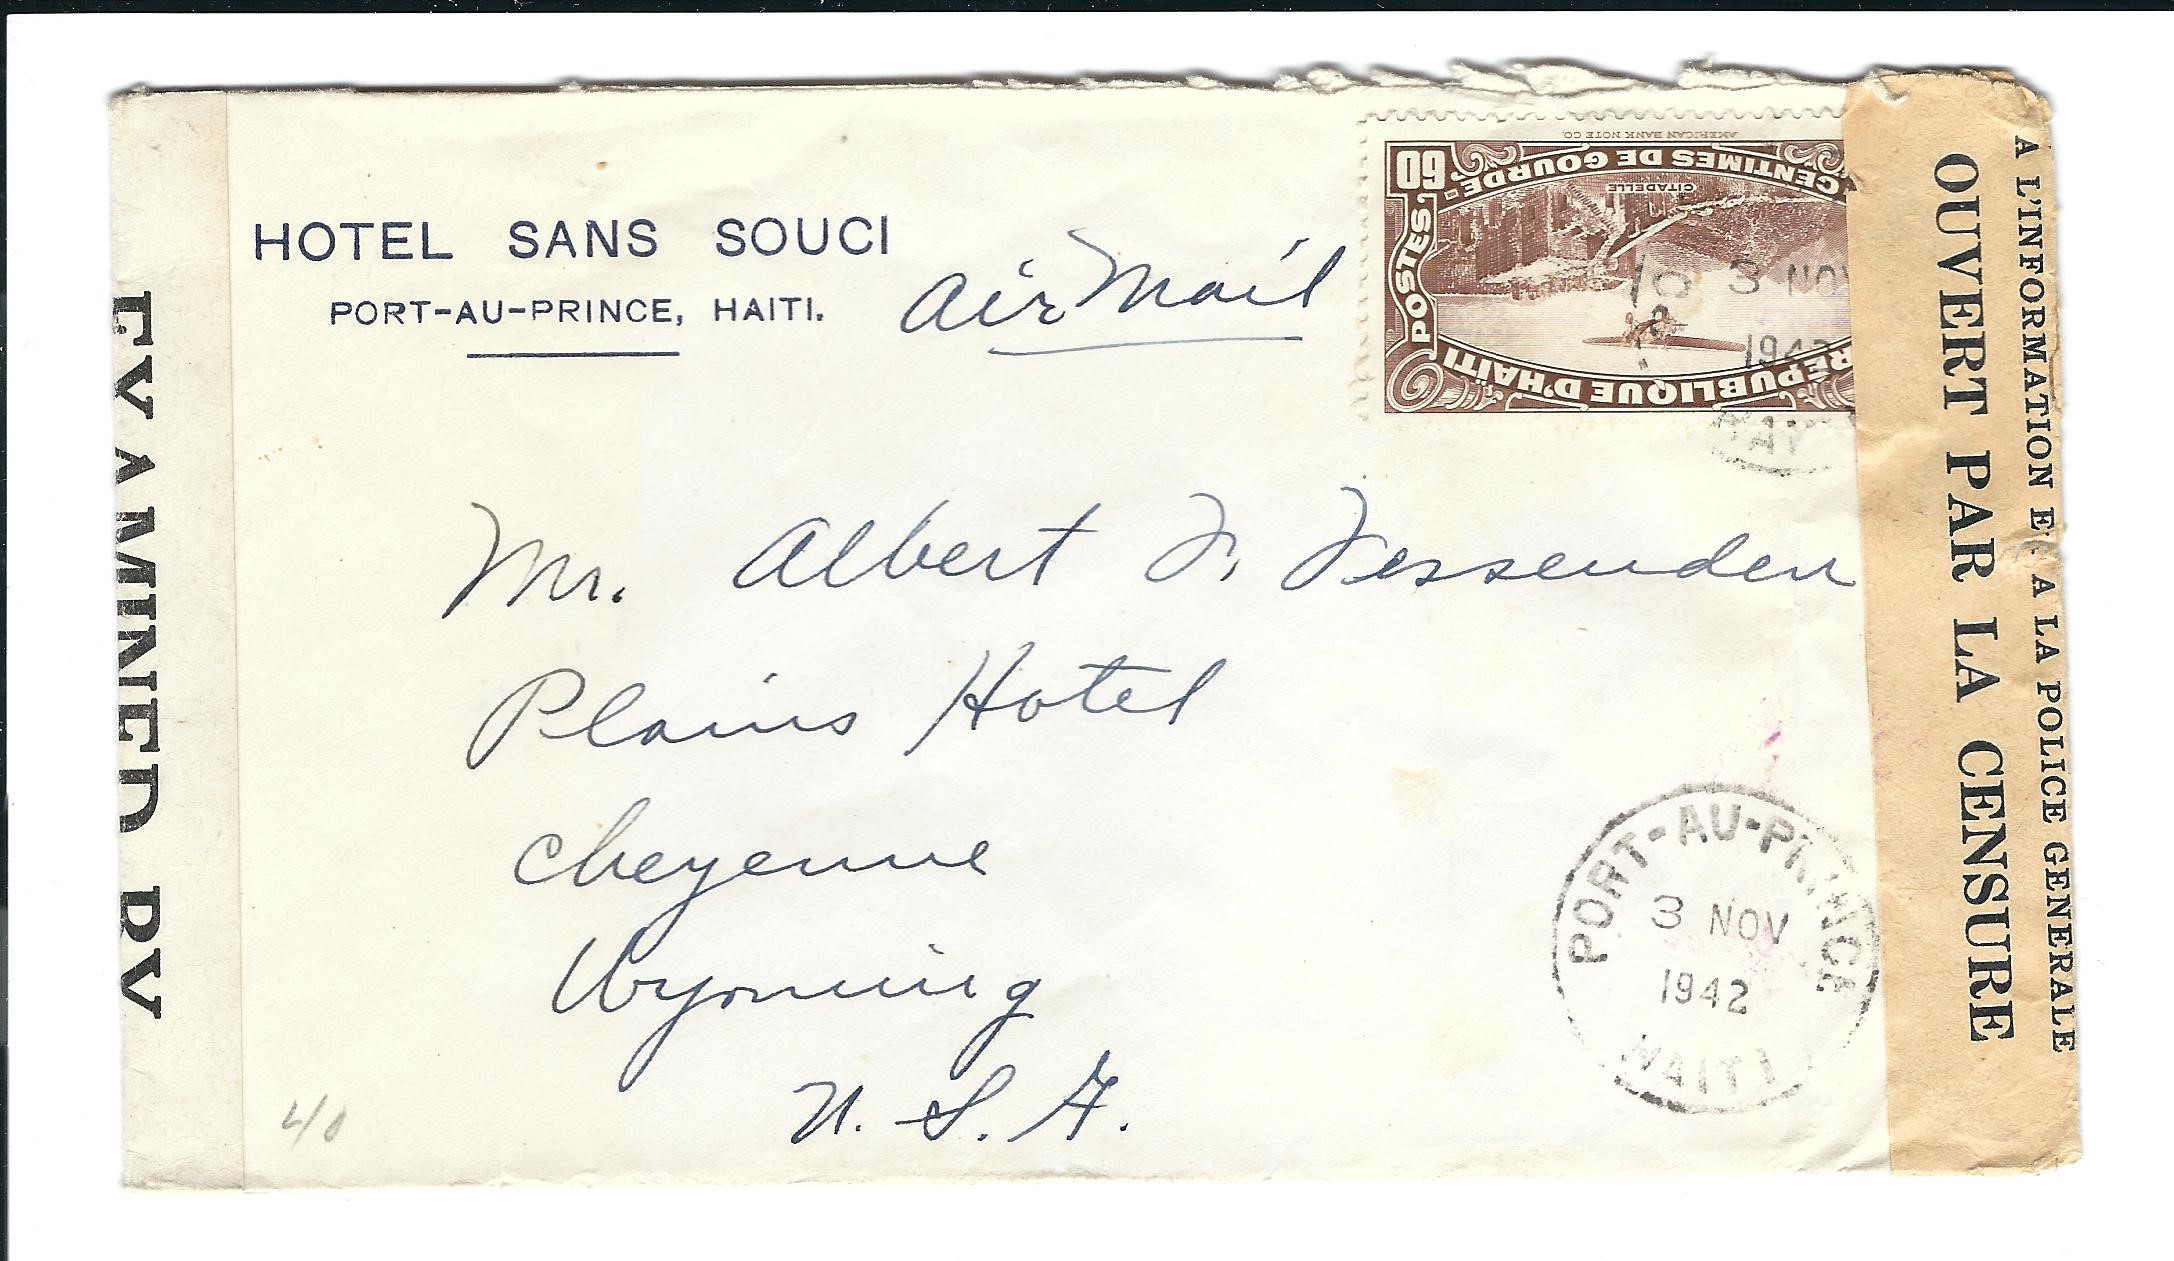 HOTEL SANS SOUCI
PORT-AU-PRINCE, HAITI.
Air Mail
AMERICAN BANK NOTE CO.
60
CENTIMES DE GOURDE
CITADELLE
POSTES
REPUBLIQUE D'HAITI
3 NOV
1942
Mr. Albert F. Fessenden
Plains Hotel
Cheyenne
Wyoming
U. S. A.
PORT-AU-PRINCE
3 NOV
1942
HAITI
EXAMINED BY
OUVERT PAR LA CENSURE
A L'INFORMATION ET A LA POLICE GENERALE